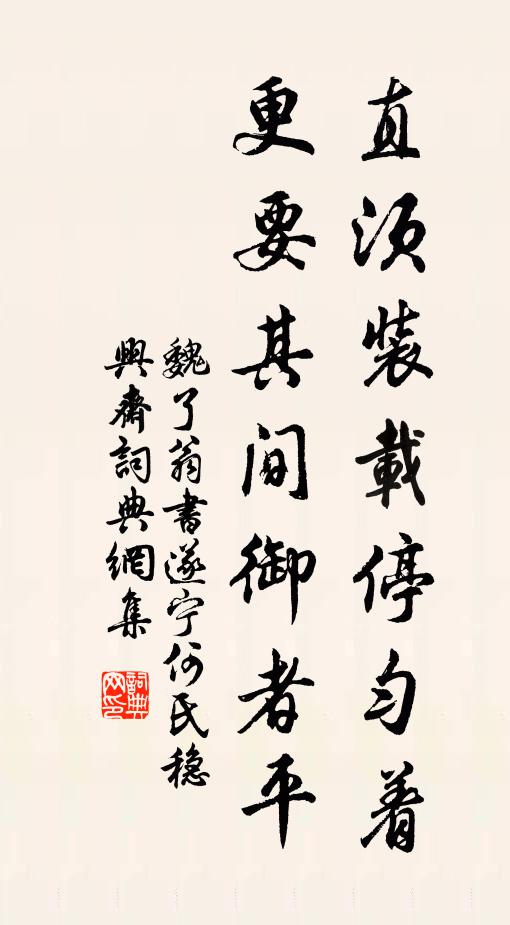 直須裝載停勻着
更要其間御者平
魏了翁書遂宁何氏穩
興齋詞典網集
詞典网印